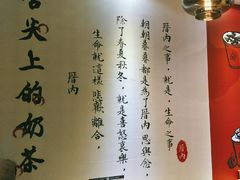 舌尖上的奶茶
厝內之事，就是，生命之事
朝朝暮暮都是為了厝內思與念，
除了春夏秋冬，就是喜怒哀樂，
生命就這樣 悲歡離合，
厝內
厝內